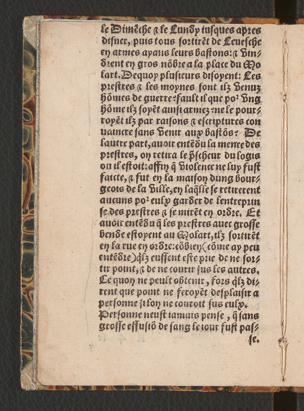 le Dimēche & le Lundy iusques apres
disner, puis tous sortirēt de Leuesche
en armes ayans leurs bastons: & vin-
drent en gros nōbre a la place du Mo
lart. Dequoy plusieurs disoyent: Ces
prestres & les moynes sont ilz venuz
hōmes de guerre: fault il que po² vng
hōme ilz soyēt ainsi armez: ne le pour-
royēt ilz par raisons & escriptures con
uaincre sans venir aux bastōs? De
lautre part, auoit entēdu la menee des
prestres, on retira le p̄scheur du logis
ou il estoit: affin q̄ violence ne luy fust
faicte, & fut en la maison dung bour-
geois de la ville, en laq̄lle se retirerent
aucuns po² eulx garder de lentreprin
se des prestres & se mirēt en ordre. Et
auoir entēdu q̄ les prestres auec grosse
bende estoyent au Molart, ilz sortirēt
en la rue en ordre: cōbien (cōme ay peu
entēdre) q̄lz eussent este prie de ne sor-
tir point, & de ne courir sus les autres.
Ce quon ne peult obtenir, fors q̄lz di-
rent que point ne feroyēt desplaisir a
personne si lon ne couroit sus eulx.
Personne neust iamais pense, q̄ sans
grosse effusiō de sang le iour fust pas-
se.